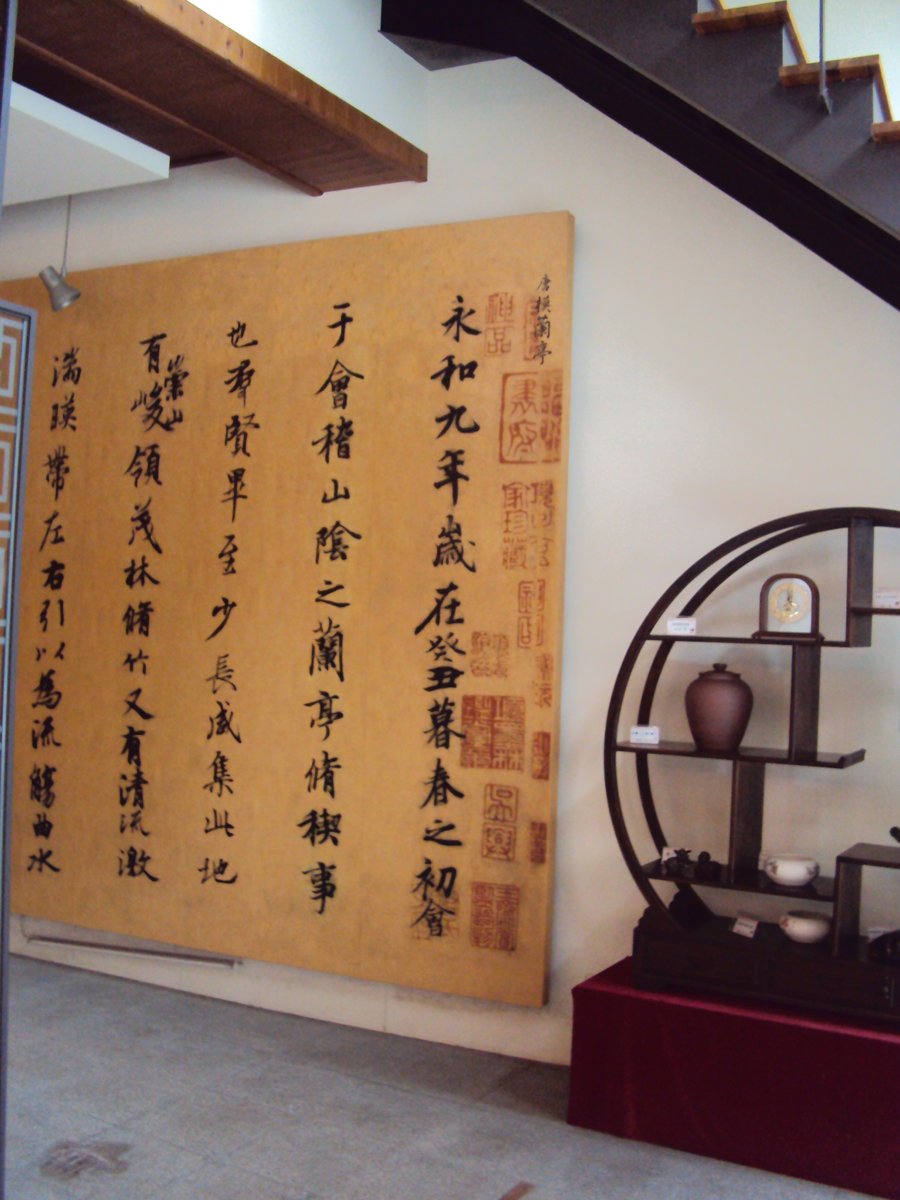 唐摸蘭亭
永和九年歲在癸丑暮春之初會
于會稽山陰之蘭亭脩稧事
也羣賢畢至少長咸集此地
有崇山峻領茂林脩竹又有清流激
湍暎帶左右引以為流觴曲水